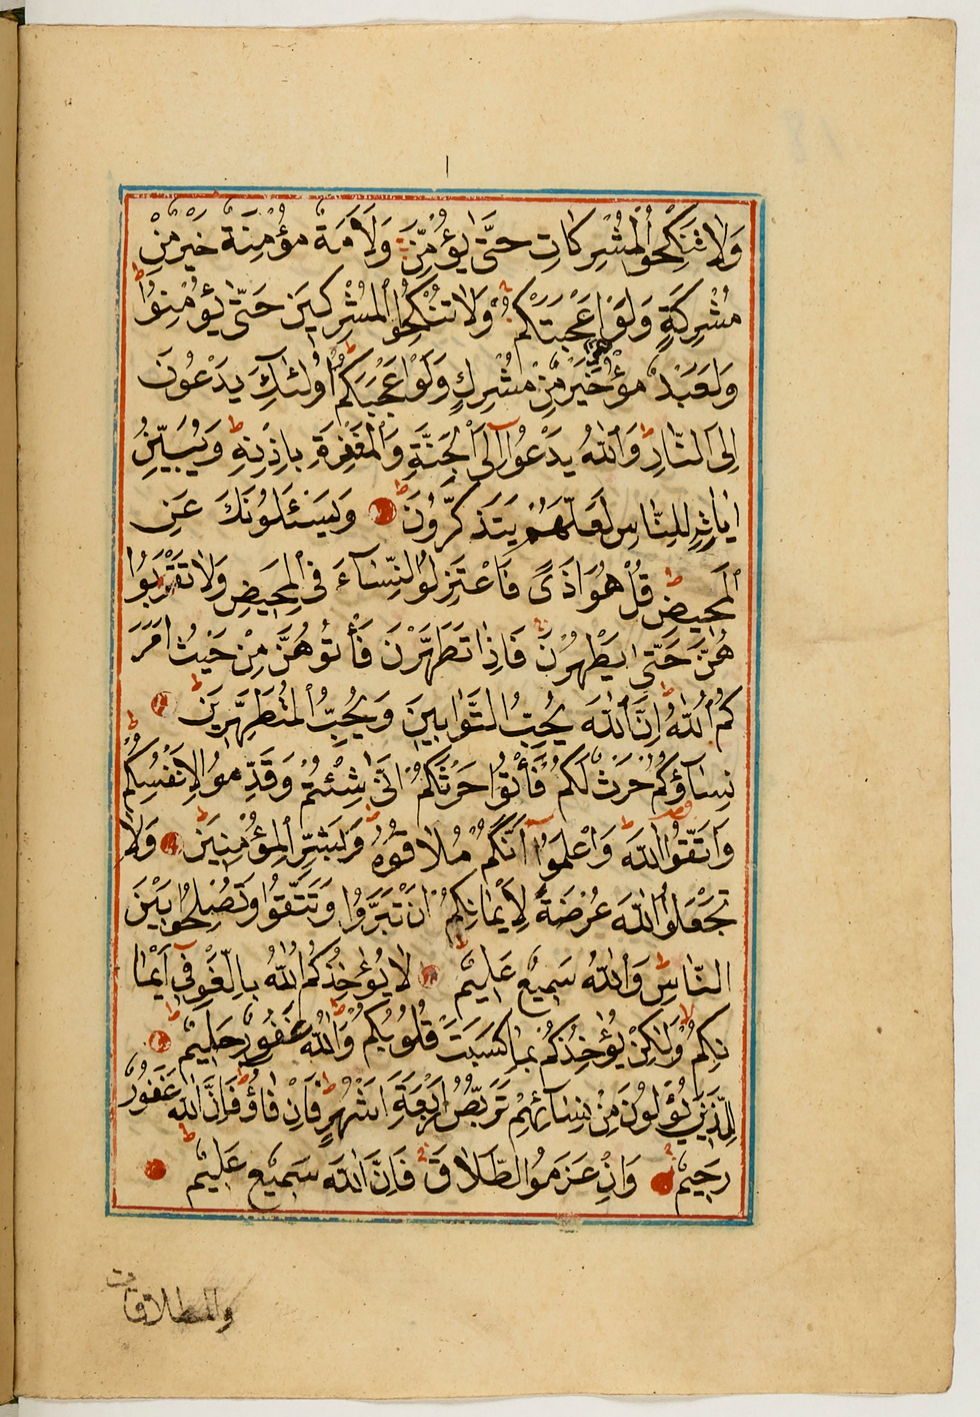 وَلَا تَنْكِحُوا الْمُشْرِكَاتِ حَتَّىٰ يُؤْمِنَّ وَلَأَمَةٌ مُؤْمِنَةٌ خَيْرٌ مِنْ
مُشْرِكَةٍ وَلَوْ أَعْجَبَتْكُمْ وَلَا تُنْكِحُوا الْمُشْرِكِينَ حَتَّىٰ يُؤْمِنُوا
وَلَعَبْدٌ مُؤْمِنٌ خَيْرٌ مِنْ مُشْرِكٍ وَلَوْ أَعْجَبَكُمْ أُولَٰئِكَ يَدْعُونَ
إِلَى النَّارِ وَاللَّهُ يَدْعُوا إِلَى الْجَنَّةِ وَالْمَغْفِرَةِ بِإِذْنِهِ وَيُبَيِّنُ
اٰيَاتِهِ لِلنَّاسِ لَعَلَّهُمْ يَتَذَكَّرُونَ وَيَسْئَلُونَكَ عَنِ
الْمَحِيضِ قُلْ هُوَ أَذًى فَاعْتَزِلُوا النِّسَاءَ فِي الْمَحِيضِ وَلَا تَقْرَبُوا
هُنَّ حَتَّىٰ يَطْهُرْنَ فَإِذَا تَطَهَّرْنَ فَأْتُوهُنَّ مِنْ حَيْثُ أَمَرَ
كُمُ اللَّهُ إِنَّ اللَّهَ يُحِبُّ التَّوَّابِينَ وَيُحِبُّ الْمُتَطَهِّرِينَ
نِسَاؤُكُمْ حَرْثٌ لَكُمْ فَأْتُوا حَرْثَكُمْ أَنَّىٰ شِئْتُمْ وَقَدِّمُوا لِأَنْفُسِكُمْ
وَاتَّقُوا اللَّهَ وَاعْلَمُوا أَنَّكُمْ مُلَاقُوهُ وَبَشِّرِ الْمُؤْمِنِينَ وَلَا
تَجْعَلُوا اللَّهَ عُرْضَةً لِأَيْمَانِكُمْ أَنْ تَبَرُّوا وَتَتَّقُوا وَتُصْلِحُوا بَيْنَ
النَّاسِ وَاللَّهُ سَمِيعٌ عَلِيمٌ لَا يُؤَاخِذُكُمُ اللَّهُ بِاللَّغْوِ فِي أَيْمَا
نِكُمْ وَلَٰكِنْ يُؤَاخِذُكُمْ بِمَا كَسَبَتْ قُلُوبُكُمْ وَاللَّهُ غَفُورٌ حَلِيمٌ
لِلَّذِينَ يُؤْلُونَ مِنْ نِسَائِهِمْ تَرَبُّصُ أَرْبَعَةِ أَشْهُرٍ فَإِنْ فَاؤُ فَإِنَّ اللَّهَ غَفُورٌ
رَحِيمٌ وَإِنْ عَزَمُوا الطَّلَاقَ فَإِنَّ اللَّهَ سَمِيعٌ عَلِيمٌ
والمطلاقات